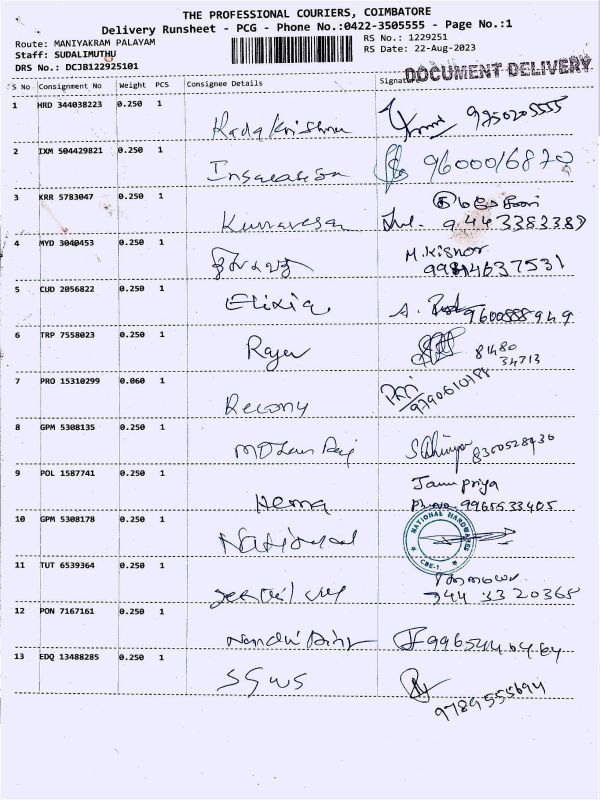 THE PROFESSIONAL COURIERS, COIMBATORE
Delivery Runsheet - PCG - Phone No.:0422-3505555 - Page No.:1
Route: MANIYAKRAM PALAYAM RS No.: 1229251
Staff: SUDALIMUTHU RS Date: 22-Aug-2023
DRS No.: DCJB122925101
DOCUMENT DELIVERY
S No Consignment No Weight PCS Consignee Details Signature
1 HRD 344038223 0.250 1
Radakrishna 9750205555
2 IXM 504429821 0.250 1
9600016870
3 KRR 5783047 0.250 1
Kumaresan 9443383389
4 MYD 3040453 0.250 1
M.Kishor
5 CUD 2056822 0.250 1
Elixia 9600888949
6 TRP 7558023 0.250 1
Rajen 81480
34713
7 PRO 15310299 0.060 1
Recony
8 GPM 5308135 0.250 1
Mohan Raj
9 POL 1587741 0.250 1
Hema Janupriya
Ph.no 9965533405
10 GPM 5308178 0.250 1
National NATIONAL HARDWARES
CBE-1.
11 TUT 6539364 0.250 1
944 33 20365
12 PON 7167161 0.250 1
13 EDQ 13488285 0.250 1
SGWS 9789555694